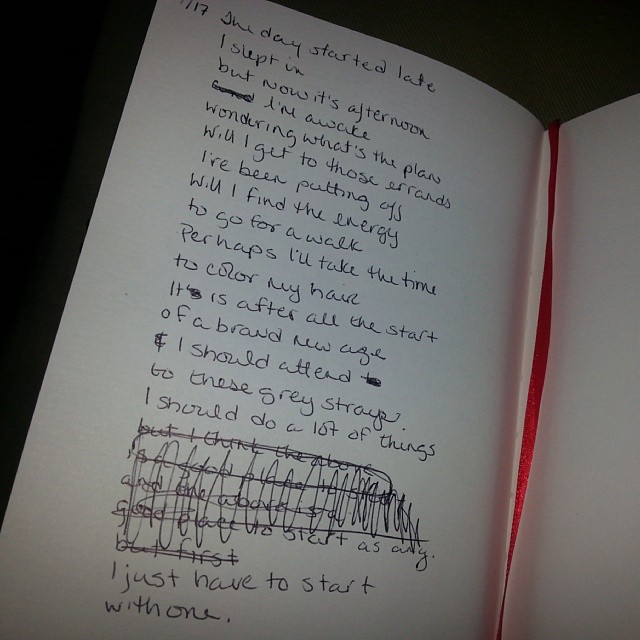 1/17 The day started late
I slept in
but now it's afternoon
I'm awake
wondering what's the plan
Will I get to those errands
I've been putting off
Will I find the energy
to go for a walk
Perhaps I'll take the time
to color my hair
It is after all the start
of a brand new age
& I should attend
to these grey strays.
I should do a lot of things
but I think the above
is a good place
and the above is a
good place to start as any.
but first
I just have to start
with one.